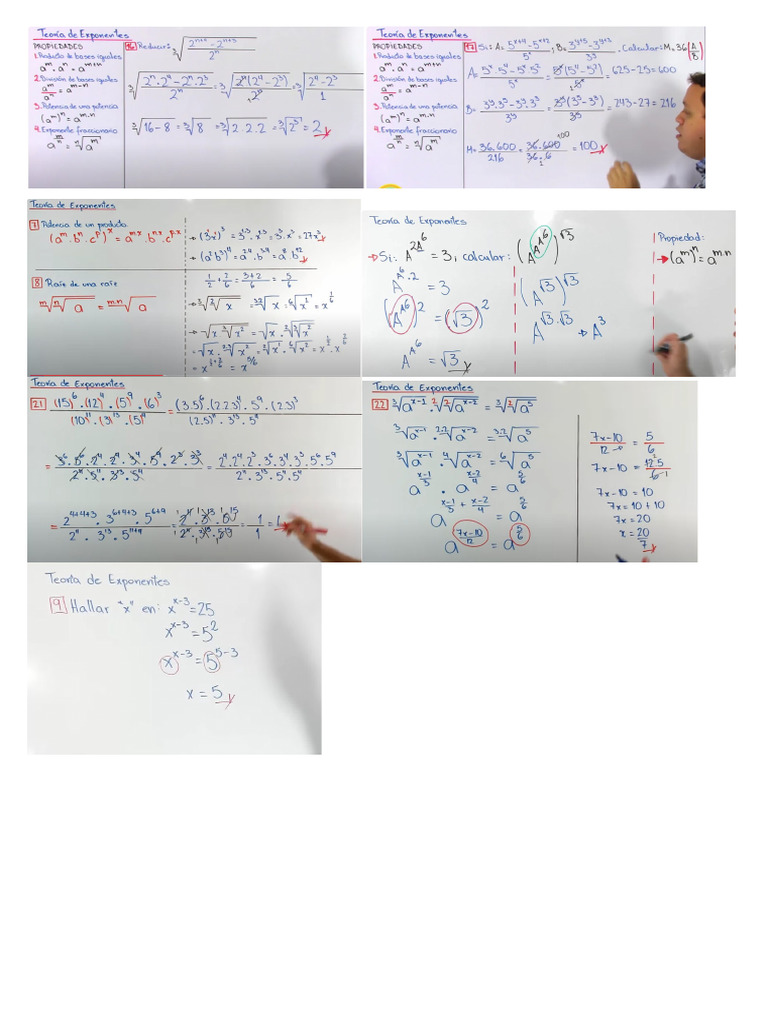 Teoría de Exponentes
PROPIEDADES
1. Producto de bases iguales
a^m · a^n = a^(m+n)
2. División de bases iguales
a^m/a^n = a^(m-n)
3. Potencia de una potencia
(a^m)^n = a^(m·n)
4. Exponente fraccionario
a^(m/n) = ⁿ√(a^m)
16 Reducir: ³√((2^(n+4) - 2^(n+3))/2^n)
³√((2^n·2^4 - 2^n·2^3)/2^n) = ³√(2^n(2^4 - 2^3)/2^n) = ³√((2^4 - 2^3)/1)
³√(16-8) = ³√8 = ³√(2.2.2) = ³√(2^3) = 2
Teoría de Exponentes
PROPIEDADES
1. Producto de bases iguales
a^m · a^n = a^(m+n)
2. División de bases iguales
a^m/a^n = a^(m-n)
3. Potencia de una potencia
(a^m)^n = a^(m·n)
4. Exponente fraccionario
a^(m/n) = ⁿ√(a^m)
17 Si: A = (5^(x+4) - 5^(x+2))/5^x ; B = (3^(y+5) - 3^(y+3))/3^y . Calcular: M = 36(A/B)
A = (5^x·5^4 - 5^x·5^2)/5^x = 5^x(5^4 - 5^2)/5^x = 625 - 25 = 600
B = (3^y·3^5 - 3^y·3^3)/3^y = 3^y(3^5 - 3^3)/3^y = 243 - 27 = 216
M = 36.600/216 = 36.600/36.6 = 100
Teoría de Exponentes
7 Potencia de un producto
(a^m · b^n · c^p)^x = a^(m·x) · b^(n·x) · c^(p·x)
→ (3x)^3 = 3^(1·3) · x^(1·3) = 3^3 · x^3 = 27x^3
→ (a^2 b^3)^4 = a^(2·4) · b^(3·4) = a^8 · b^12
8 Raíz de una raíz
ᵐ√(ⁿ√a) = ᵐ·ⁿ√a
1/2 + 2/6 = (3+2)/6 = 5/6
→ ³√(²√x) = ³·²√x = ⁶√(x^1) = x^(1/6)
→ √(x · ³√(x^2)) = √x · √(³√(x^2))
= √x · ²·³√(x^2) = ²√(x^1) · ⁶√(x^2) = x^(1/2) · x^(2/6)
= x^(1/2 + 2/6) = x^(5/6)
Teoría de Exponentes
Si: A^(2A^(A^6)) = 3, calcular: (A^(A^(A^6)))^√3
A^(A^6 · 2) = 3
(A^(A^6))^2 = (√3)^2
A^(A^6) = √3
(A^√3)^√3
A^(√3·√3) → A^3
Propiedad:
→ (a^m)^n = a^(m·n)
Teoría de Exponentes
21 (15)^6 · (12)^4 · (5)^9 · (6)^3 / (10)^11 · (3)^13 · (5)^4 = (3.5)^6 · (2.2.3)^4 · 5^9 · (2.3)^3 / (2.5)^11 · 3^13 · 5^4
= 3^6 · 5^6 · 2^4 · 2^4 · 3^4 · 5^9 · 2^3 · 3^3 / 2^11 · 5^11 · 3^13 · 5^4 = 2^4 · 2^4 · 2^3 · 3^6 · 3^4 · 3^3 · 5^6 · 5^9 / 2^11 · 3^13 · 5^11 · 5^4
= 2^(4+4+3) · 3^(6+4+3) · 5^(6+9) / 2^11 · 3^13 · 5^(11+4) = 2^11 · 3^13 · 5^15 / 2^11 · 3^13 · 5^15 = 1/1 = 1
Teoría de Exponentes
22 ³√(a^(x-1)) · ²√(²√(a^(x-2))) = ³√(²√(a^5))
³√(a^(x-1)) · ²·²√(a^(x-2)) = ³·²√(a^5)
³√(a^(x-1)) · ⁴√(a^(x-2)) = ⁶√(a^5)
a^((x-1)/3) · a^((x-2)/4) = a^(5/6)
a^((x-1)/3 + (x-2)/4) = a^(5/6)
a^((7x-10)/12) = a^(5/6)
(7x-10)/12 = 5/6
7x-10 = 12.5/6
7x-10 = 10
7x = 10 + 10
7x = 20
x = 20/7
Teoría de Exponentes
9 Hallar "x" en: x^(x-3) = 25
x^(x-3) = 5^2
x^(x-3) = 5^(5-3)
x = 5